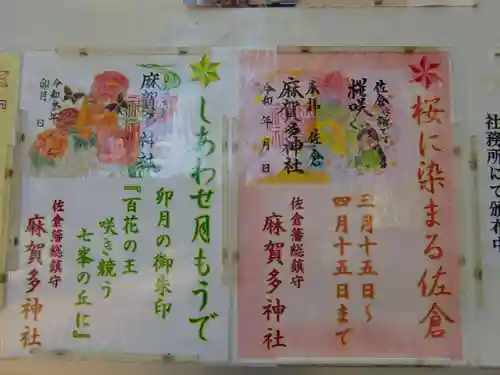 桜に染まる佐倉
三月十五日〜
四月十五日まで
佐倉藩総鎮守
麻賀多神社
麻賀多神社
令和 年 月 日
しあわせ月もうで
卯月の御朱印
『百花の王
咲き競う
七峯の丘に』
佐倉藩総鎮守
麻賀多神社
卯月 日
社務所にて頒布中